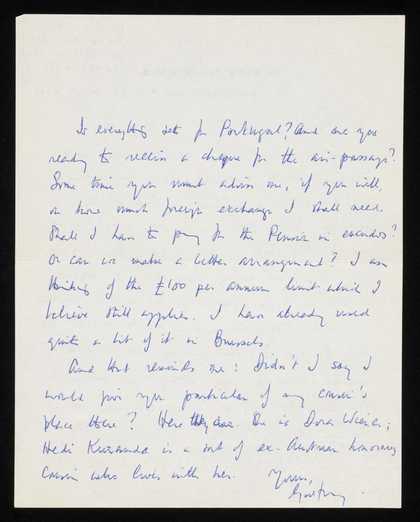 Is everything set for Portugal? And are you
ready to receive a cheque for the air-passage?
Some time you must advise me, if you will,
on how much foreign exchange I shall need.
Shall I have to pay for the Pension in escudos?
Or can we make a better arrangement? I am
thinking of the £100 per annum limit which I
believe still applies. I have already used
quite a bit of it in Brussels.
And that reminds me: Didn't I say I
would give you particulars of my cousin's
place there? Here they are. One is Dora
Hedi is a sort of ex-Austrian honorary
cousin who lives with her.
Yours,